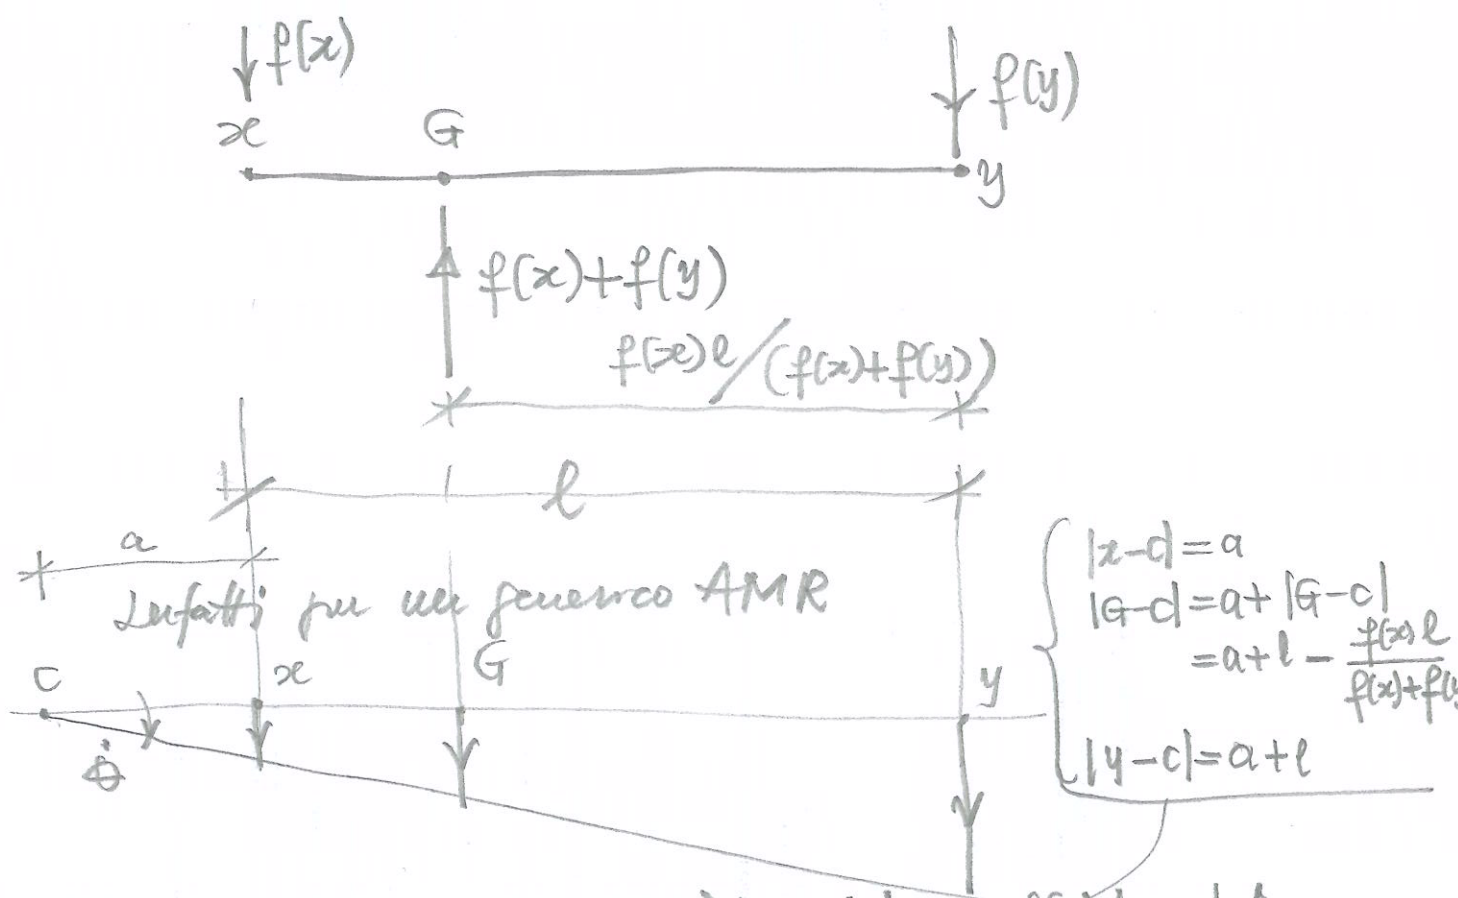 f(x)
f(y)
x
G
y
f(x)+f(y)
f(x)l/(f(x)+f(y))
l
a
Infatti per un generico AMR
c
x
G
y
θ̇
|x-c|=a
|G-c|=a+|G-c|
=a+l-f(x)l/f(x)+f(y
|y-c|=a+l